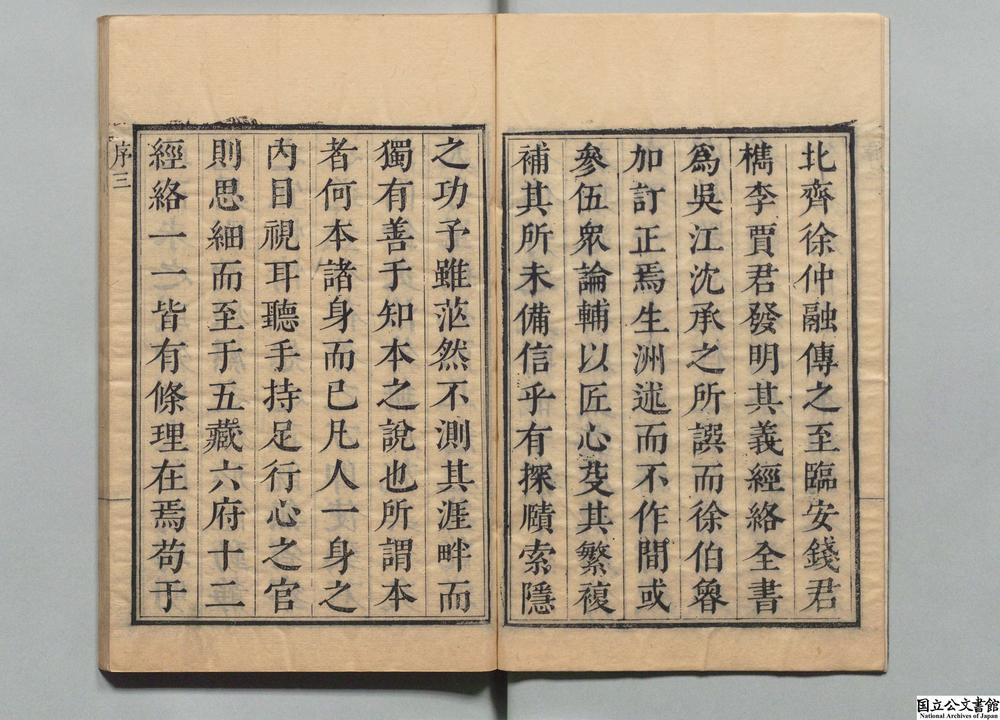 北齊徐仲融傳之至臨安錢君
檇李賈君發明其義經絡全書
爲吳江沈承之所譔而徐伯魯
加訂正焉生洲述而不作間或
參伍衆論輔以匠心芟其繁複
補其所未備信乎有探賾索隱
之功予雖茫然不測其涯畔而
獨有善于知本之說也所謂本
者何本諸身而已凡人一身之
內目視耳聽手持足行心之官
則思細而至于五藏六府十二
經絡一一皆有條理在焉苟于
序 三
国立公文書館
National Archives of Japan